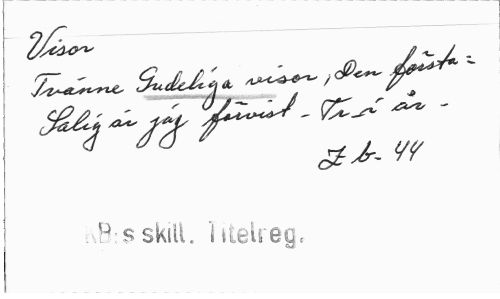 Visor
Tvänne Gudeliga visor, Den första=
Salig är jag förvist - Tr. i år -
Z b. 44
KB:s skill. Titelreg.